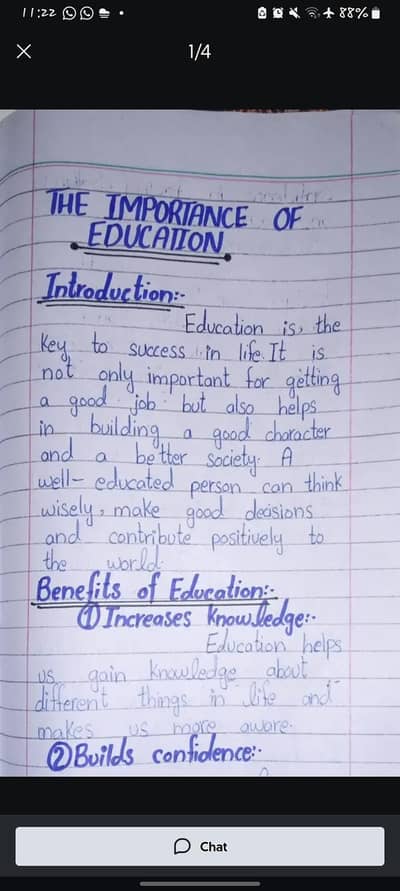 11:22
88%
1/4
THE IMPORTANCE OF
EDUCATION
Introduction:-
Education is, the
key to success in life. It is
not only important for getting
a good job but also helps
in building a good character
and a better society. A
well-educated person can think
wisely, make good decisions
and contribute positively to
the world.
Benefits of Education:-
① Increases knowledge:-
Education helps
us gain knowledge about
different things in life and
makes us more aware.
② Builds confidence:-
Chat